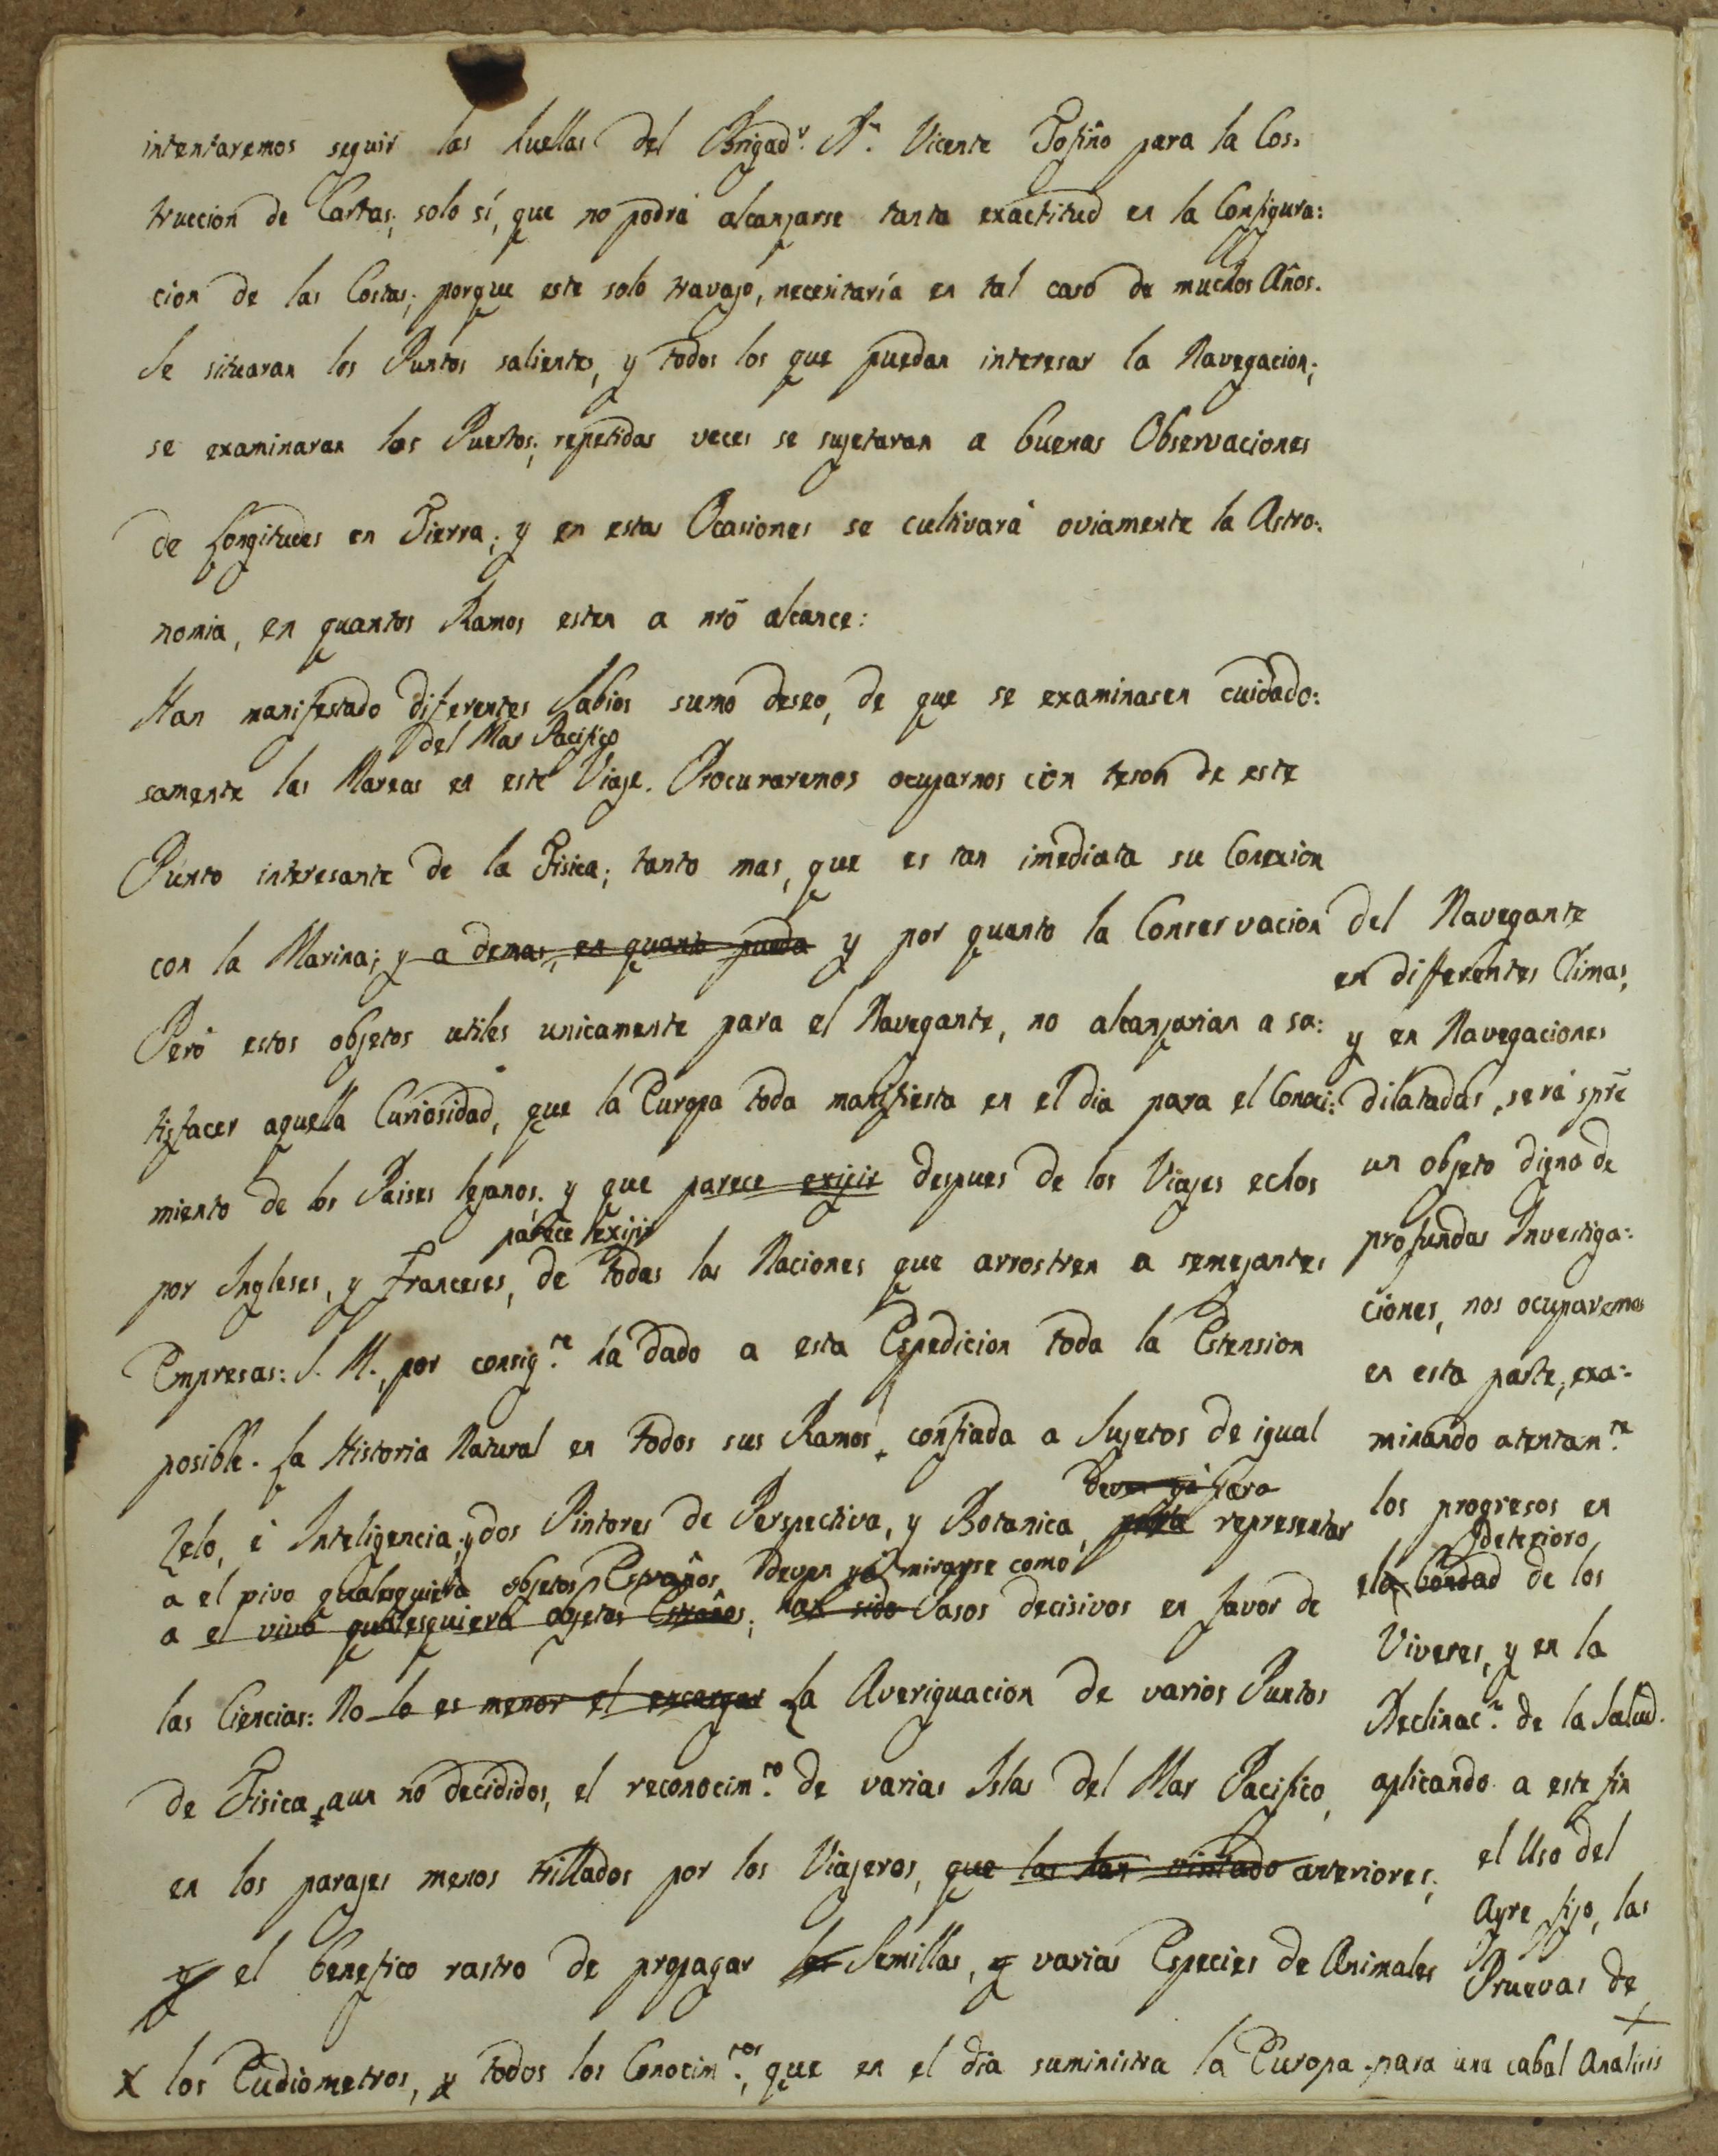 intentaremos seguir las huellas del Brigad.r D.n Vicente Tofiño para la Cos:
truccion de Cartas; solo sí, que no podrá alcanzarse tanta exactitud en la Configura:
cion de las Costas; porque este solo travajo, necesitaría en tal caso de muchos Años.
Se situaran los Puntos salientes, y todos los que puedan interesar la Navegacion;
se examinaran los Puertos; repetidas veces se sujetaran a buenas Observaciones
de Longitudes en Tierra; y en estas Ocasiones se cultivará oviamente la Astro:
nomia, en quantos Ramos esten a nrõ alcance:
Han manifestado diferentes Sabios sumo deseo, de que se examinasen cuidado:
del Mar Pacifico
samente las Mareas en este Viaje. Procuraremos ocuparnos con teson de este
Punto interesante de la Fisica; tanto mas, que es tan imediata su Conexion
con la Marina; y a demas, en quanto pueda y por quanto la Conservacion del Navegante
en diferentes Climas,
y en Navegaciones
dilatadas, será sprẽ
un objeto digno de
profundas Investiga:
ciones, nos ocuparemos
en esta parte, exa:
minando atentam.te
los progresos en
deterioro
el la bondad de los
Viveres, y en la
Declinac.n de la Salud.
aplicando a este fin
el Uso del
Ayre fijo, las
Pruevas de
+
X los Eudiometros, y todos los Conocim.tos, que en el dia suministra la Europa para una cabal Analisis
Pero estos objetos utiles unicamente para el Navegante, no alcanzarian a sa:
tisfacer aquella Curiosidad, que la Europa toda manifiesta en el dia para el Conoci:
miento de los Paises lejanos; y que parece exijir despues de los Viajes echos
parece exijir
por Ingleses, y Franceses, de todas las Naciones que arrostren a semejantes
Empresas: S. M., por consig.te há dado a esta Espedicion toda la Estension
posible. La Historia Natural en todos sus Ramos, confiada a Sujetos de igual
Deven yá para
Zelo, è Inteligencia; y dos Pintores de Perspectiva, y Botanica, para representar
a el vivo qualesquiera objetos Estraños, Deven yá mirarse como
a el vivo qualesquiera objetos Estraños; han sido Pasos decisivos en favor de
las Ciencias: No lo es menor el encargar La Averiguacion de varios Puntos
de Fisica, aun no decididos, el reconocim.to de varias Islas del Mar Pacifico,
en los parajes menos trillados por los Viajeros, que las han visitado anteriores;
y el benefico rastro de propagar las Semillas, y varias Especies de Animales